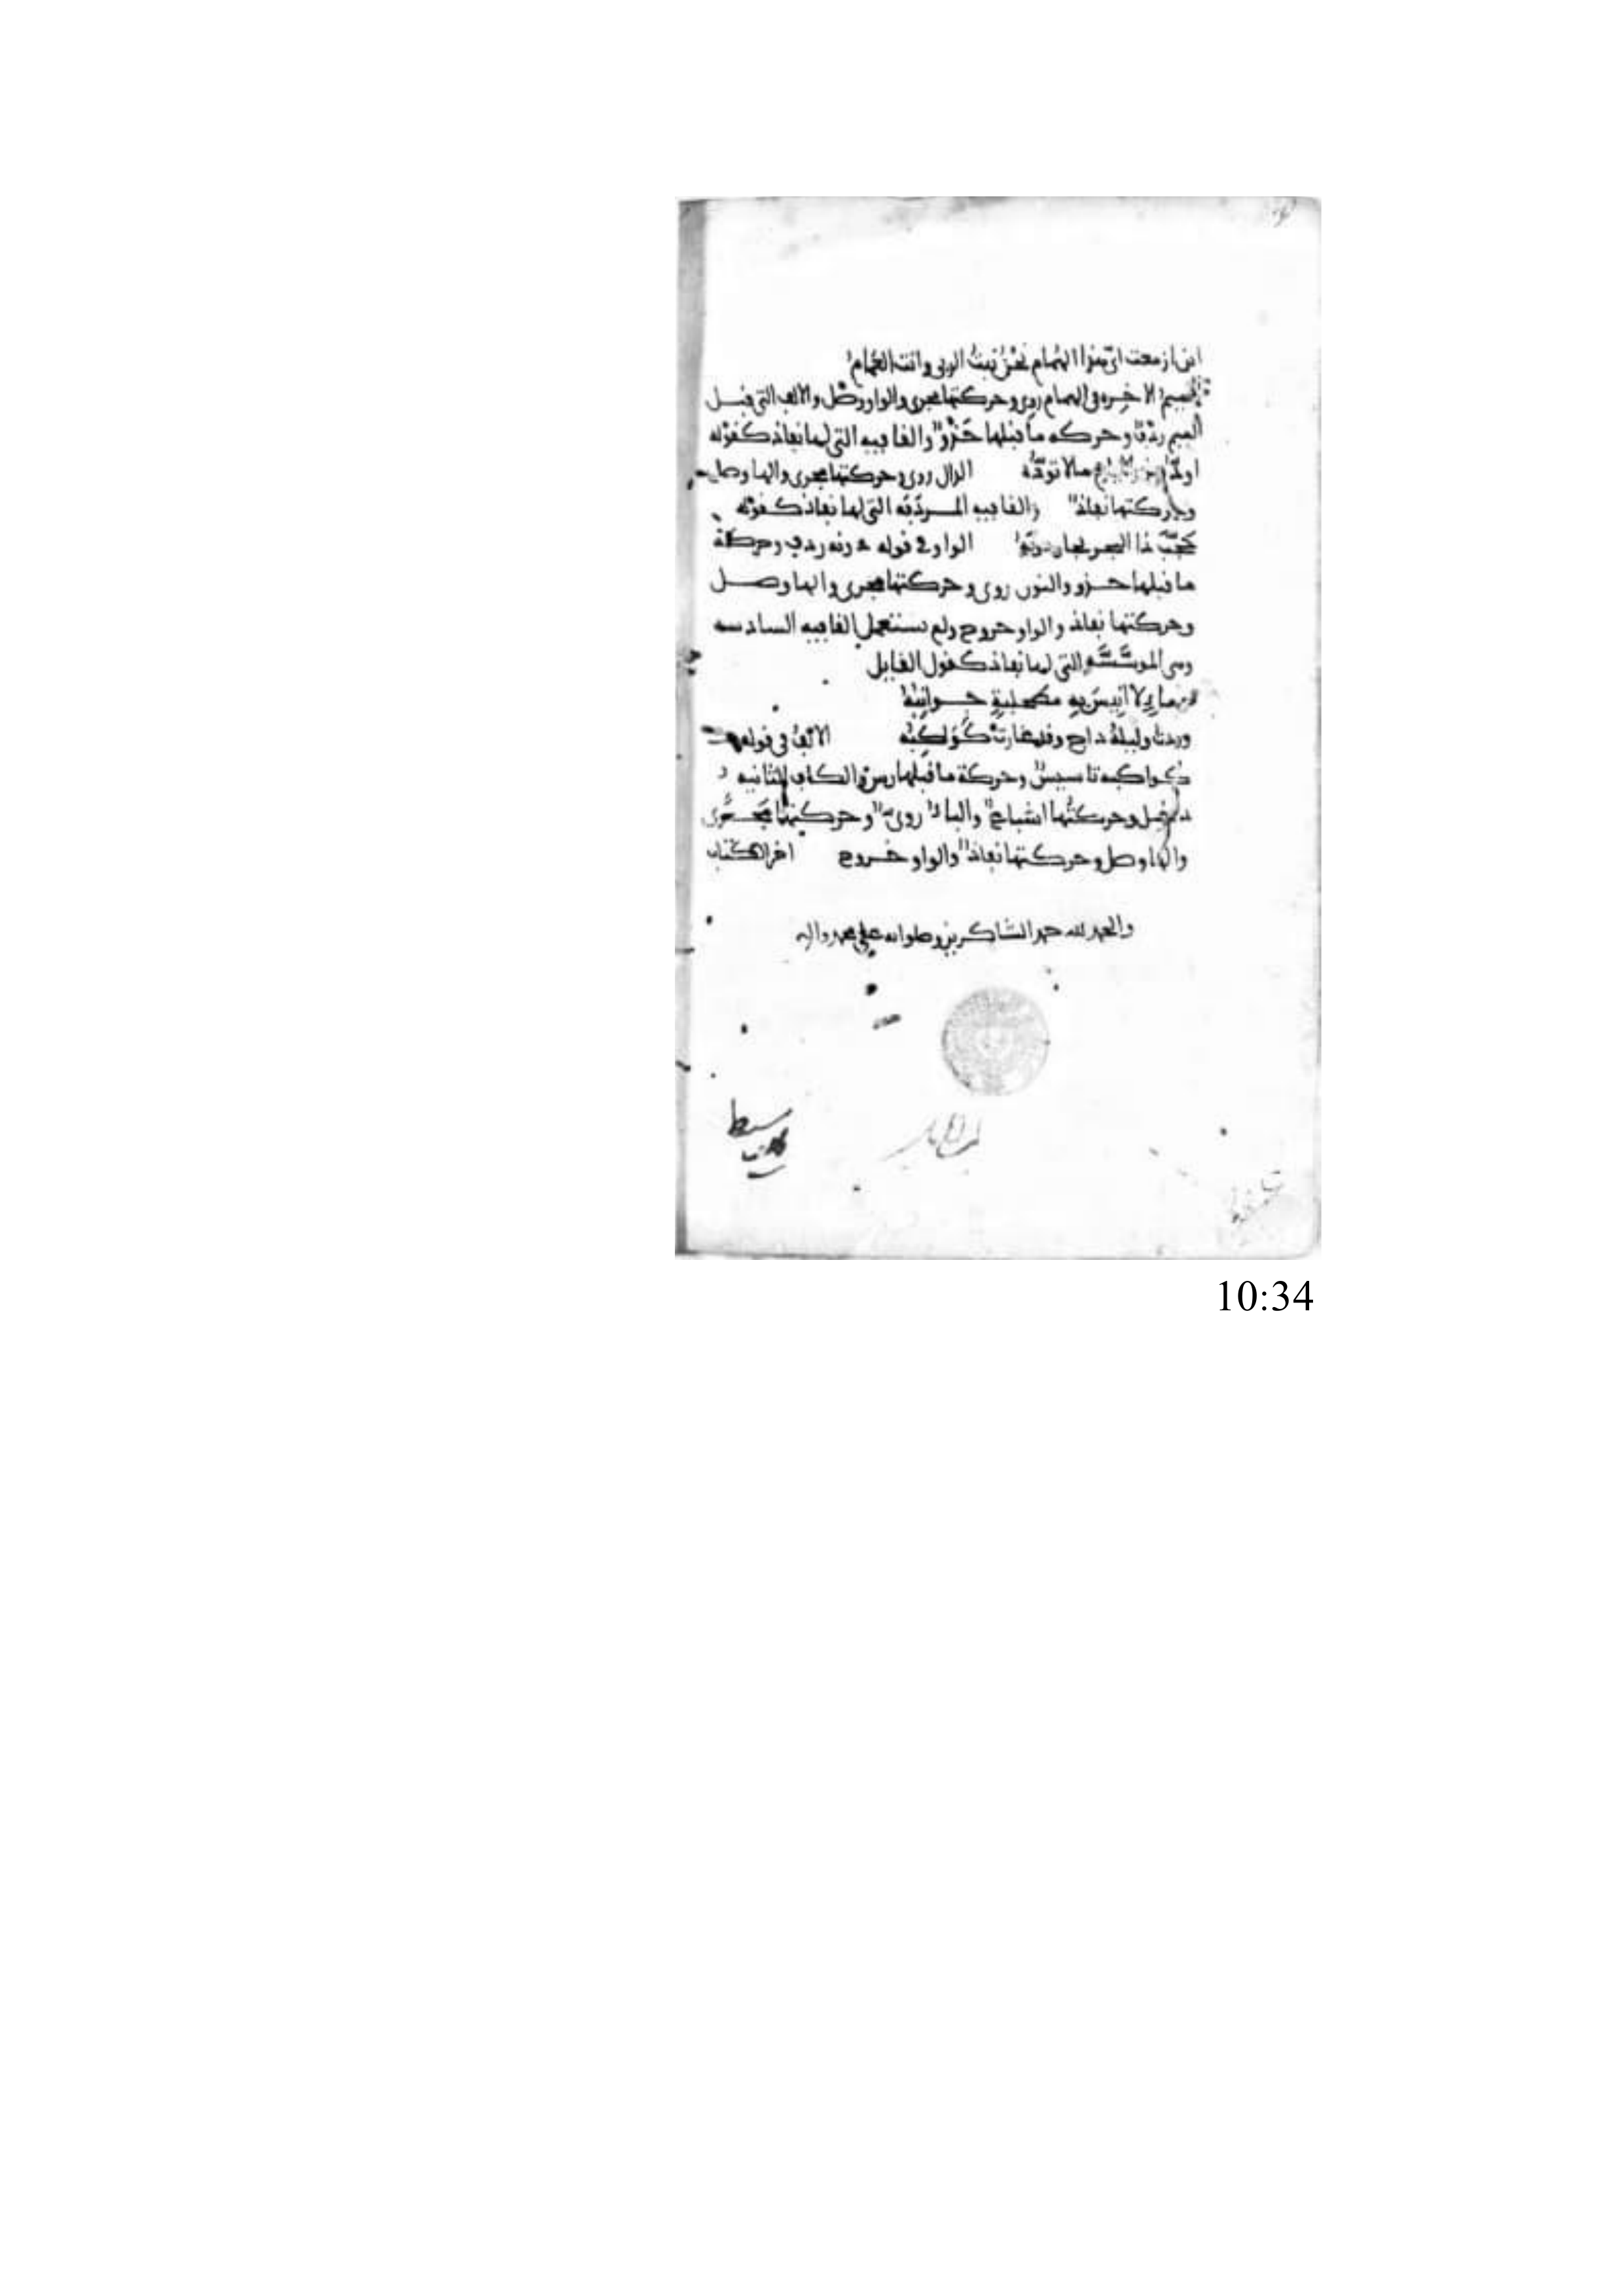 اين ازمعت اي هذا الهمام نحن نبت الربى وانت الغمام
الميم الاخيره في الهمام روي وحركتها مجرى والواو وصل والالف التي قبل
الميم ردف وحركه ما قبلها حذو والقافيه التي لها نفاذ كقوله
اود ما لا توده الدال روي وحركتها مجرى والها وصل
وحركتها نفاذ والقافيه المردفه التي لها نفاذ كقوله
ذا البحر بحار دونه الواو في قوله دونه ردف وحركة
ما قبلها حذو والنون روي وحركتها مجرى والها وصل
وحركتها نفاذ والواو خروج ولم يستعمل القافيه السادسه
وهي الموسسه التي لها نفاذ كقول القايل
وما لا انيس به مطحلبة جوانبه
وردنا وليله داج وقد غارت كواكبه الالف في قوله
كواكبه تاسيس وحركة ما قبلها رس والكاف الثانيه
دخيل وحركتها اشباع والباء روي وحركتها مجرى
والها وصل وحركتها نفاذ والواو خروج اخر الكتاب
والحمد لله حمد الشاكرين وصلواته على محمد واله
10:34